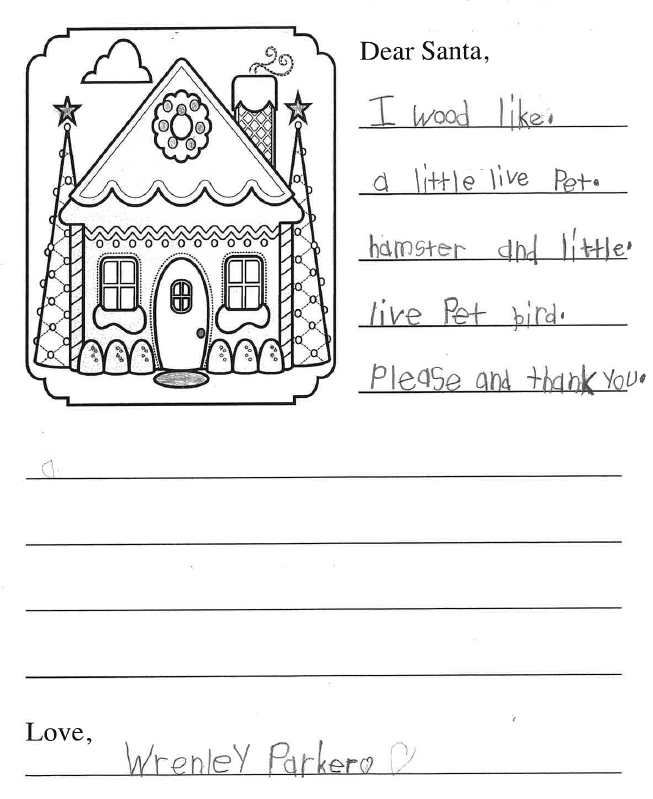 Dear Santa,
I wood like.
a little live Pet.
hamster and little.
live Pet bird.
Please and thank you.
Love,
Wrenley Parker